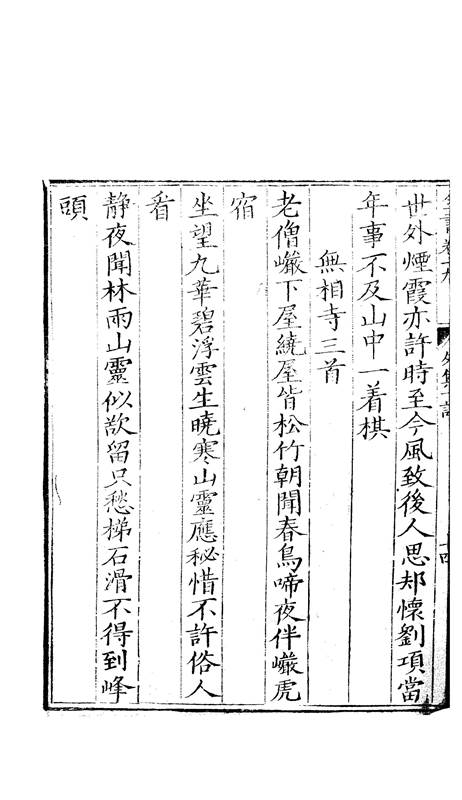 世外煙霞亦許時至今風致後人思却懷劉項當
年事不及山中一着棋
無相寺三首
老僧巖下屋繞屋皆松竹朝聞春鳥啼夜伴巖虎
宿
坐望九華碧浮雲生曉寒山靈應秘惜不許俗人
看
靜夜聞林雨山靈似欲留只愁梯石滑不得到峰
頭